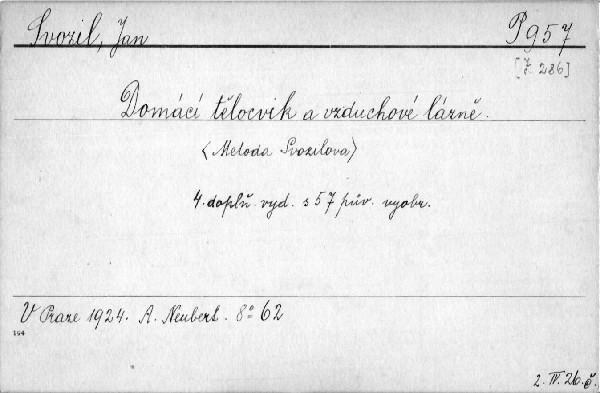 Svozil, Jan P957
[Ž. 286]
Domácí tělocvik a vzduchové lázně.
<Metoda Svozilova>
4. doplň. vyd. s 57 pův. vyobr.
V Praze 1924. A. Neubert. 8° 62
194
2. IV. 26. Š.